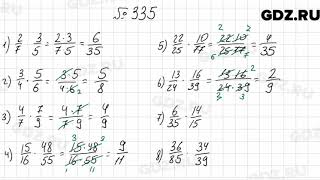 GDZ.RU
№ 335
1) 2/7 · 3/5 = 2·3/7·5 = 6/35
2) 3/4 · 5/6 = 3·5/ = 5/8
3) 4/7 · 7/9 = 4·7/7·9 = 4/9
4) 15/16 · 48/55 = 15·48/16·55 = 9/11
5) 22/25 · 10/77 = 22·10/25·77 = 4/35
6) 13/24 · 16/39 = 13·16/24·39 = 2/9
7) 6/35 · 14/15
8) 36/85 · 34/39